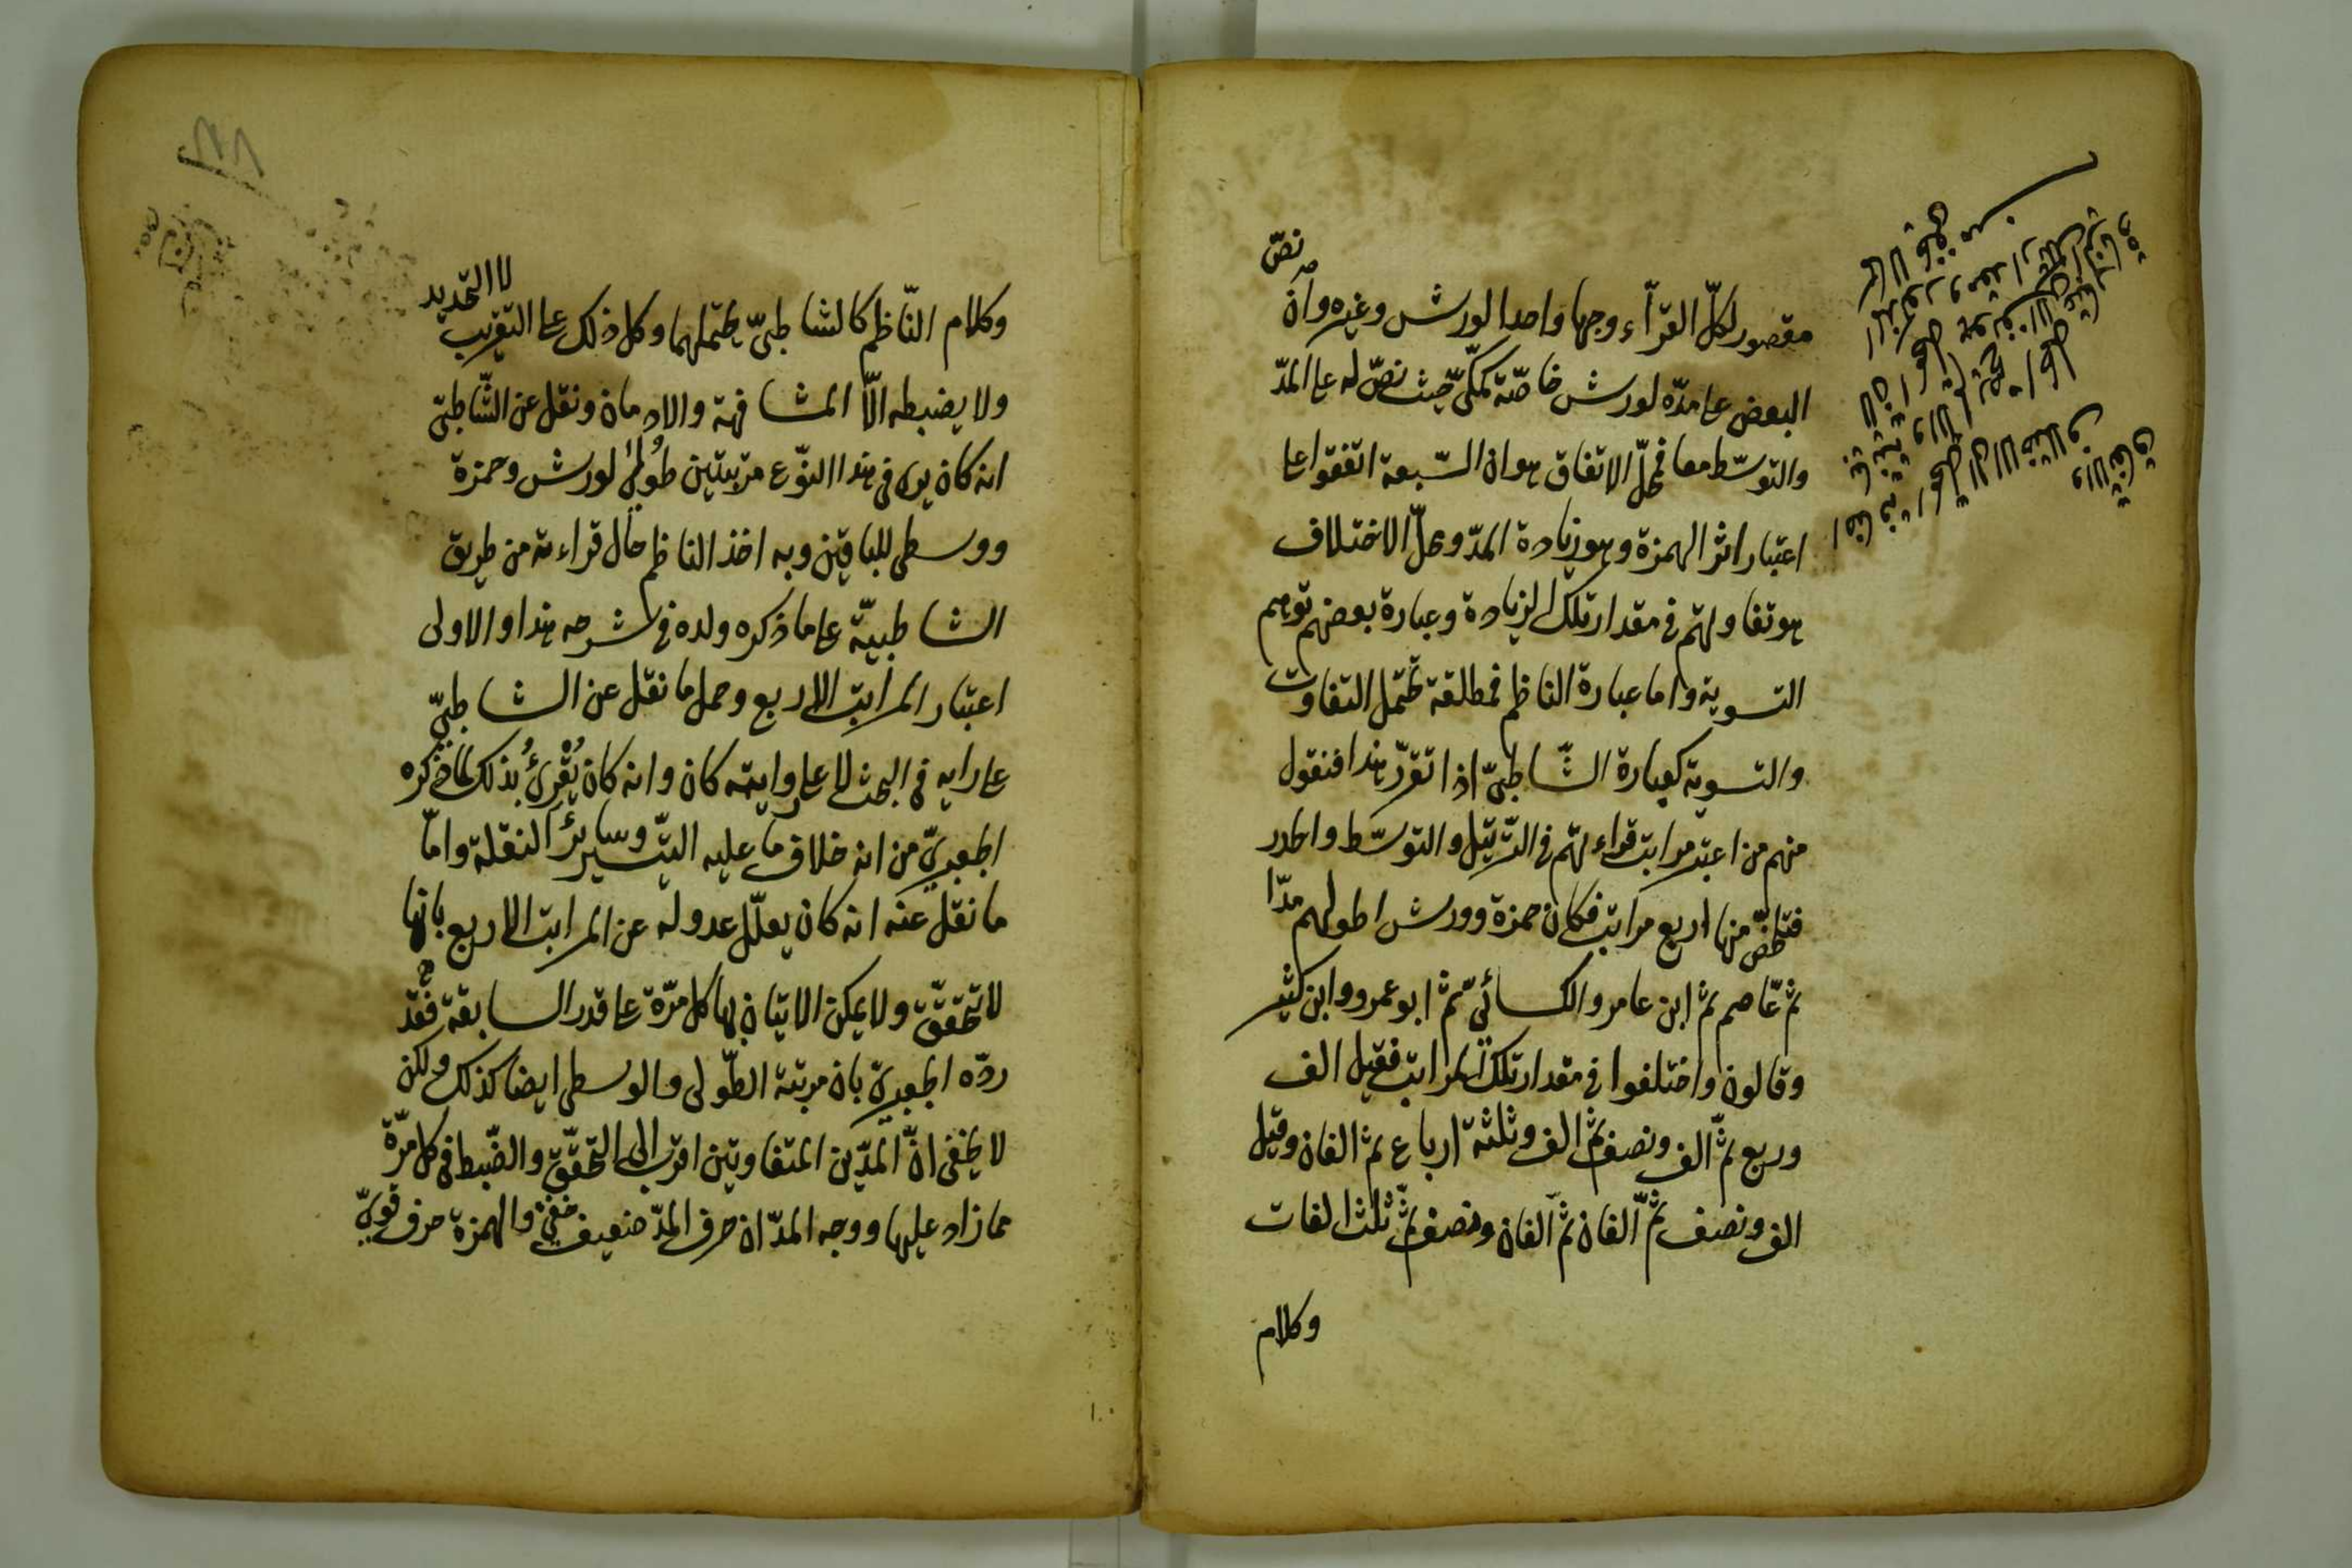 نصّ
مقصور لكلّ القرّاء وجها واحدا لورش وغيره وان
البعض على مدّه لورش خاصّة كمكّيّ حيث نصّ له على المدّ
والتوسّط معا فمحلّ الاتفاق هو ان السّبعة اتفقوا على
اعتبار اثر الهمزة وهو زيادة المدّ ومحلّ الاختلاف
هو تفاوتهم في مقدار تلك الزيادة وعبارة بعضهم توهم
التسوية واما عبارة الناظم فمطلقة تحتمل التفاوت
والتسوية كعبارة الشّاطبيّ اذا تقرّر هذا فنقول
منهم من اعتبر مراتب قراءتهم في التّرتيل والتوسّط والحدر
منها اربع مراتب فكان حمزة وورش اطولهم مدّا
ثم عاصم ثم ابن عامر والكسائيّ ثم ابو عمرو وابن كثير
وقالون واختلفوا في مقدار تلك المراتب فقيل الف
وربع ثمّ الف ونصف ثم الف وثلثة ارباع ثم الفان وقيل
الف ونصف ثمّ الفان ثم الفان ونصف ثمّ ثلث الفات
وكلام
لا التحديد
وكلام النّاظم كالشاطبيّ يحتملهما وكل ذلك على التقريب
ولا يضبطه الّا المشافهة والادمان ونقل عن الشّاطبيّ
انه كان يرى في هذا النّوع مرتبتين طُولى لورش وحمزة
ووسطى للباقين وبه اخذ الناظم حال قراءته من طريق
الشاطبيّة على ما ذكره ولده في شرحه هذا والاولى
اعتبار المراتب الاربع وحمل ما نقل عن الشاطبيّ
على رايه في البحث لا على روايته كان وانه كان يُقْرِئُ بذلك لما ذكره
الجعبريّ من انه خلاف ما عليه التيسير وسائر النقلة وامّا
ما نقل عنه انه كان يعلّل عدوله عن المراتب الاربع بانها
لا تتحقّق ولا يمكن الاتيان بها كل مرّة على قدر السابقة فقد
ردّه الجعبريّ بان مرتبة الطّولى والوسطى ايضا كذلك ولكن
لا يخفى انّ المدّين المتفاوتين اقرب الى التحقّق والضّبط في كل مرّة
مما زاد عليها ووجه المدّ ان حرف المدّ ضعيف خفيّ والهمزة حرف قويّ